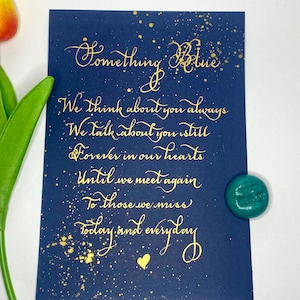 Something Blue
&
We think about you always
We talk about you still
Forever in our hearts
Until we meet again
To those we miss
Today and everyday